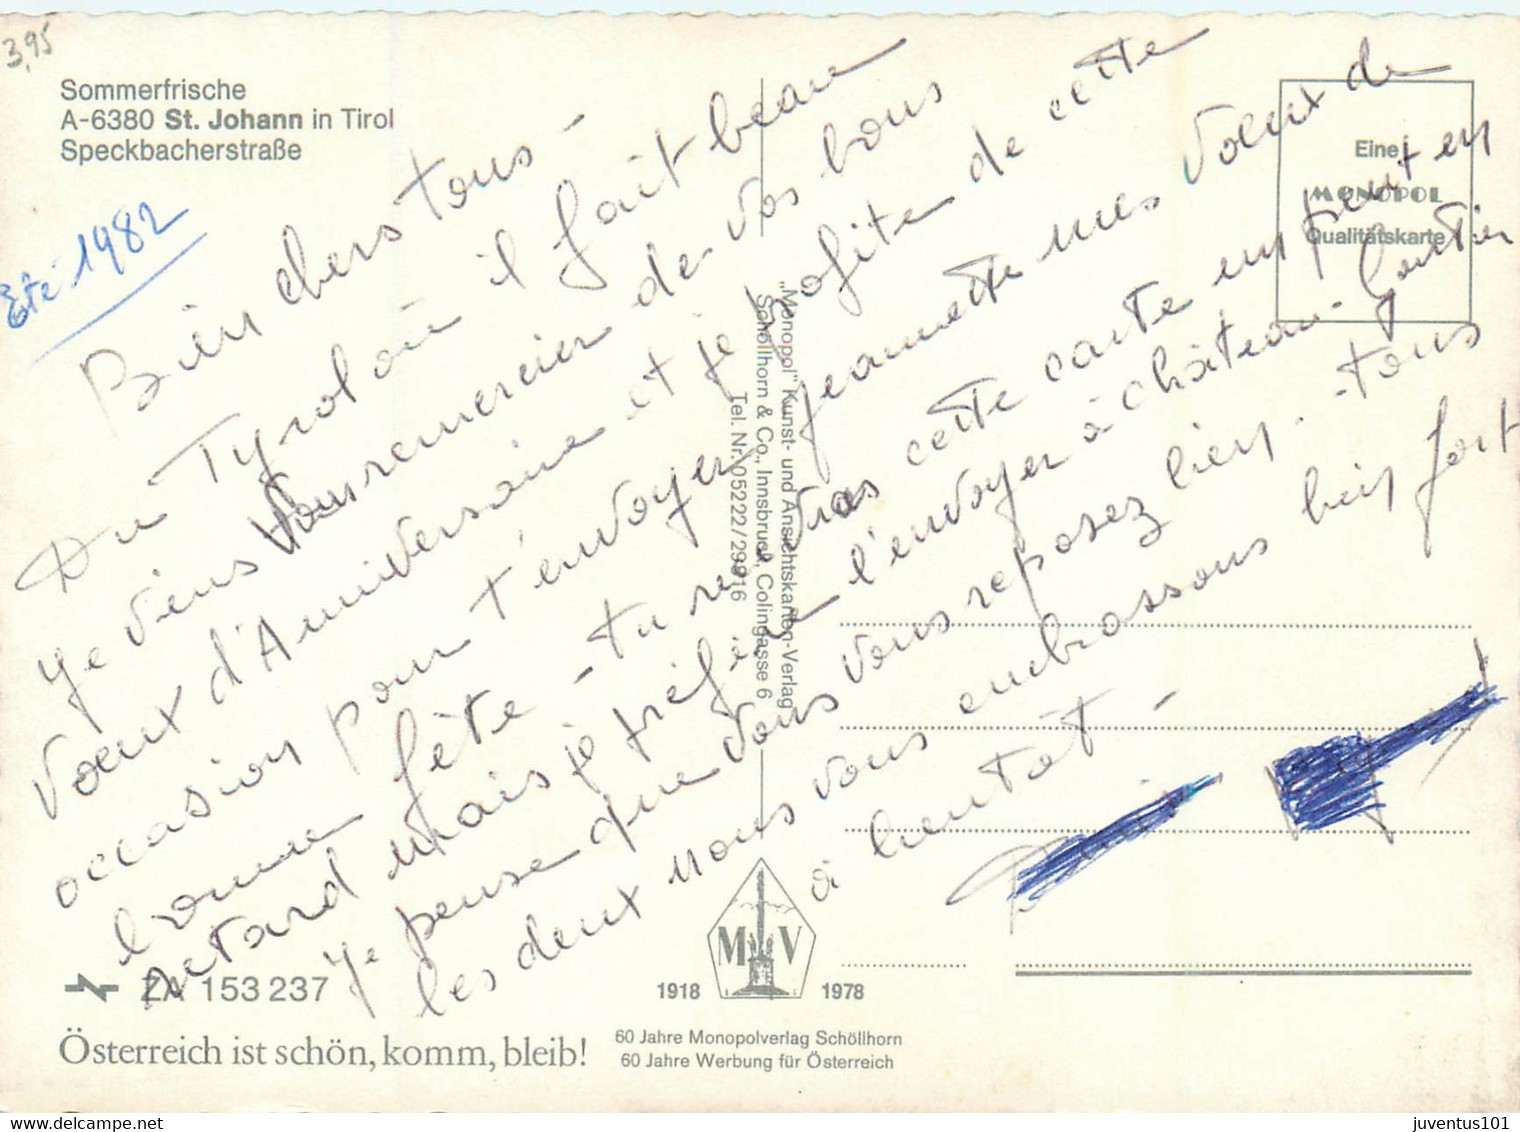 3,95
Sommerfrische
A-6380 St. Johann in Tirol
Speckbacherstraße
Été 1982
Bien chers tous -
Du Tyrol où il fait beau
Je viens vous remercier de vos bons
voeux d'Anniversaire et je profite de cette
occasion pour t'envoyer Jeannette mes voeux de
bonne fête - tu recevras cette carte un peu en
retard mais je préfère l'envoyer à château-Gontier
Je pense que vous vous reposez bien - tous
les deux nous vous embrassons bien fort
à bientôt -
Eine
MONOPOL
Qualitätskarte
„Monopol" Kunst- und Ansichtskarten-Verlag
Schöllhorn & Co., Innsbruck, Colingasse 6
Tel. Nr. 05222/29916
ZA 153 237
M V
1918 1978
Österreich ist schön, komm, bleib!
60 Jahre Monopolverlag Schöllhorn
60 Jahre Werbung für Österreich
juventus101